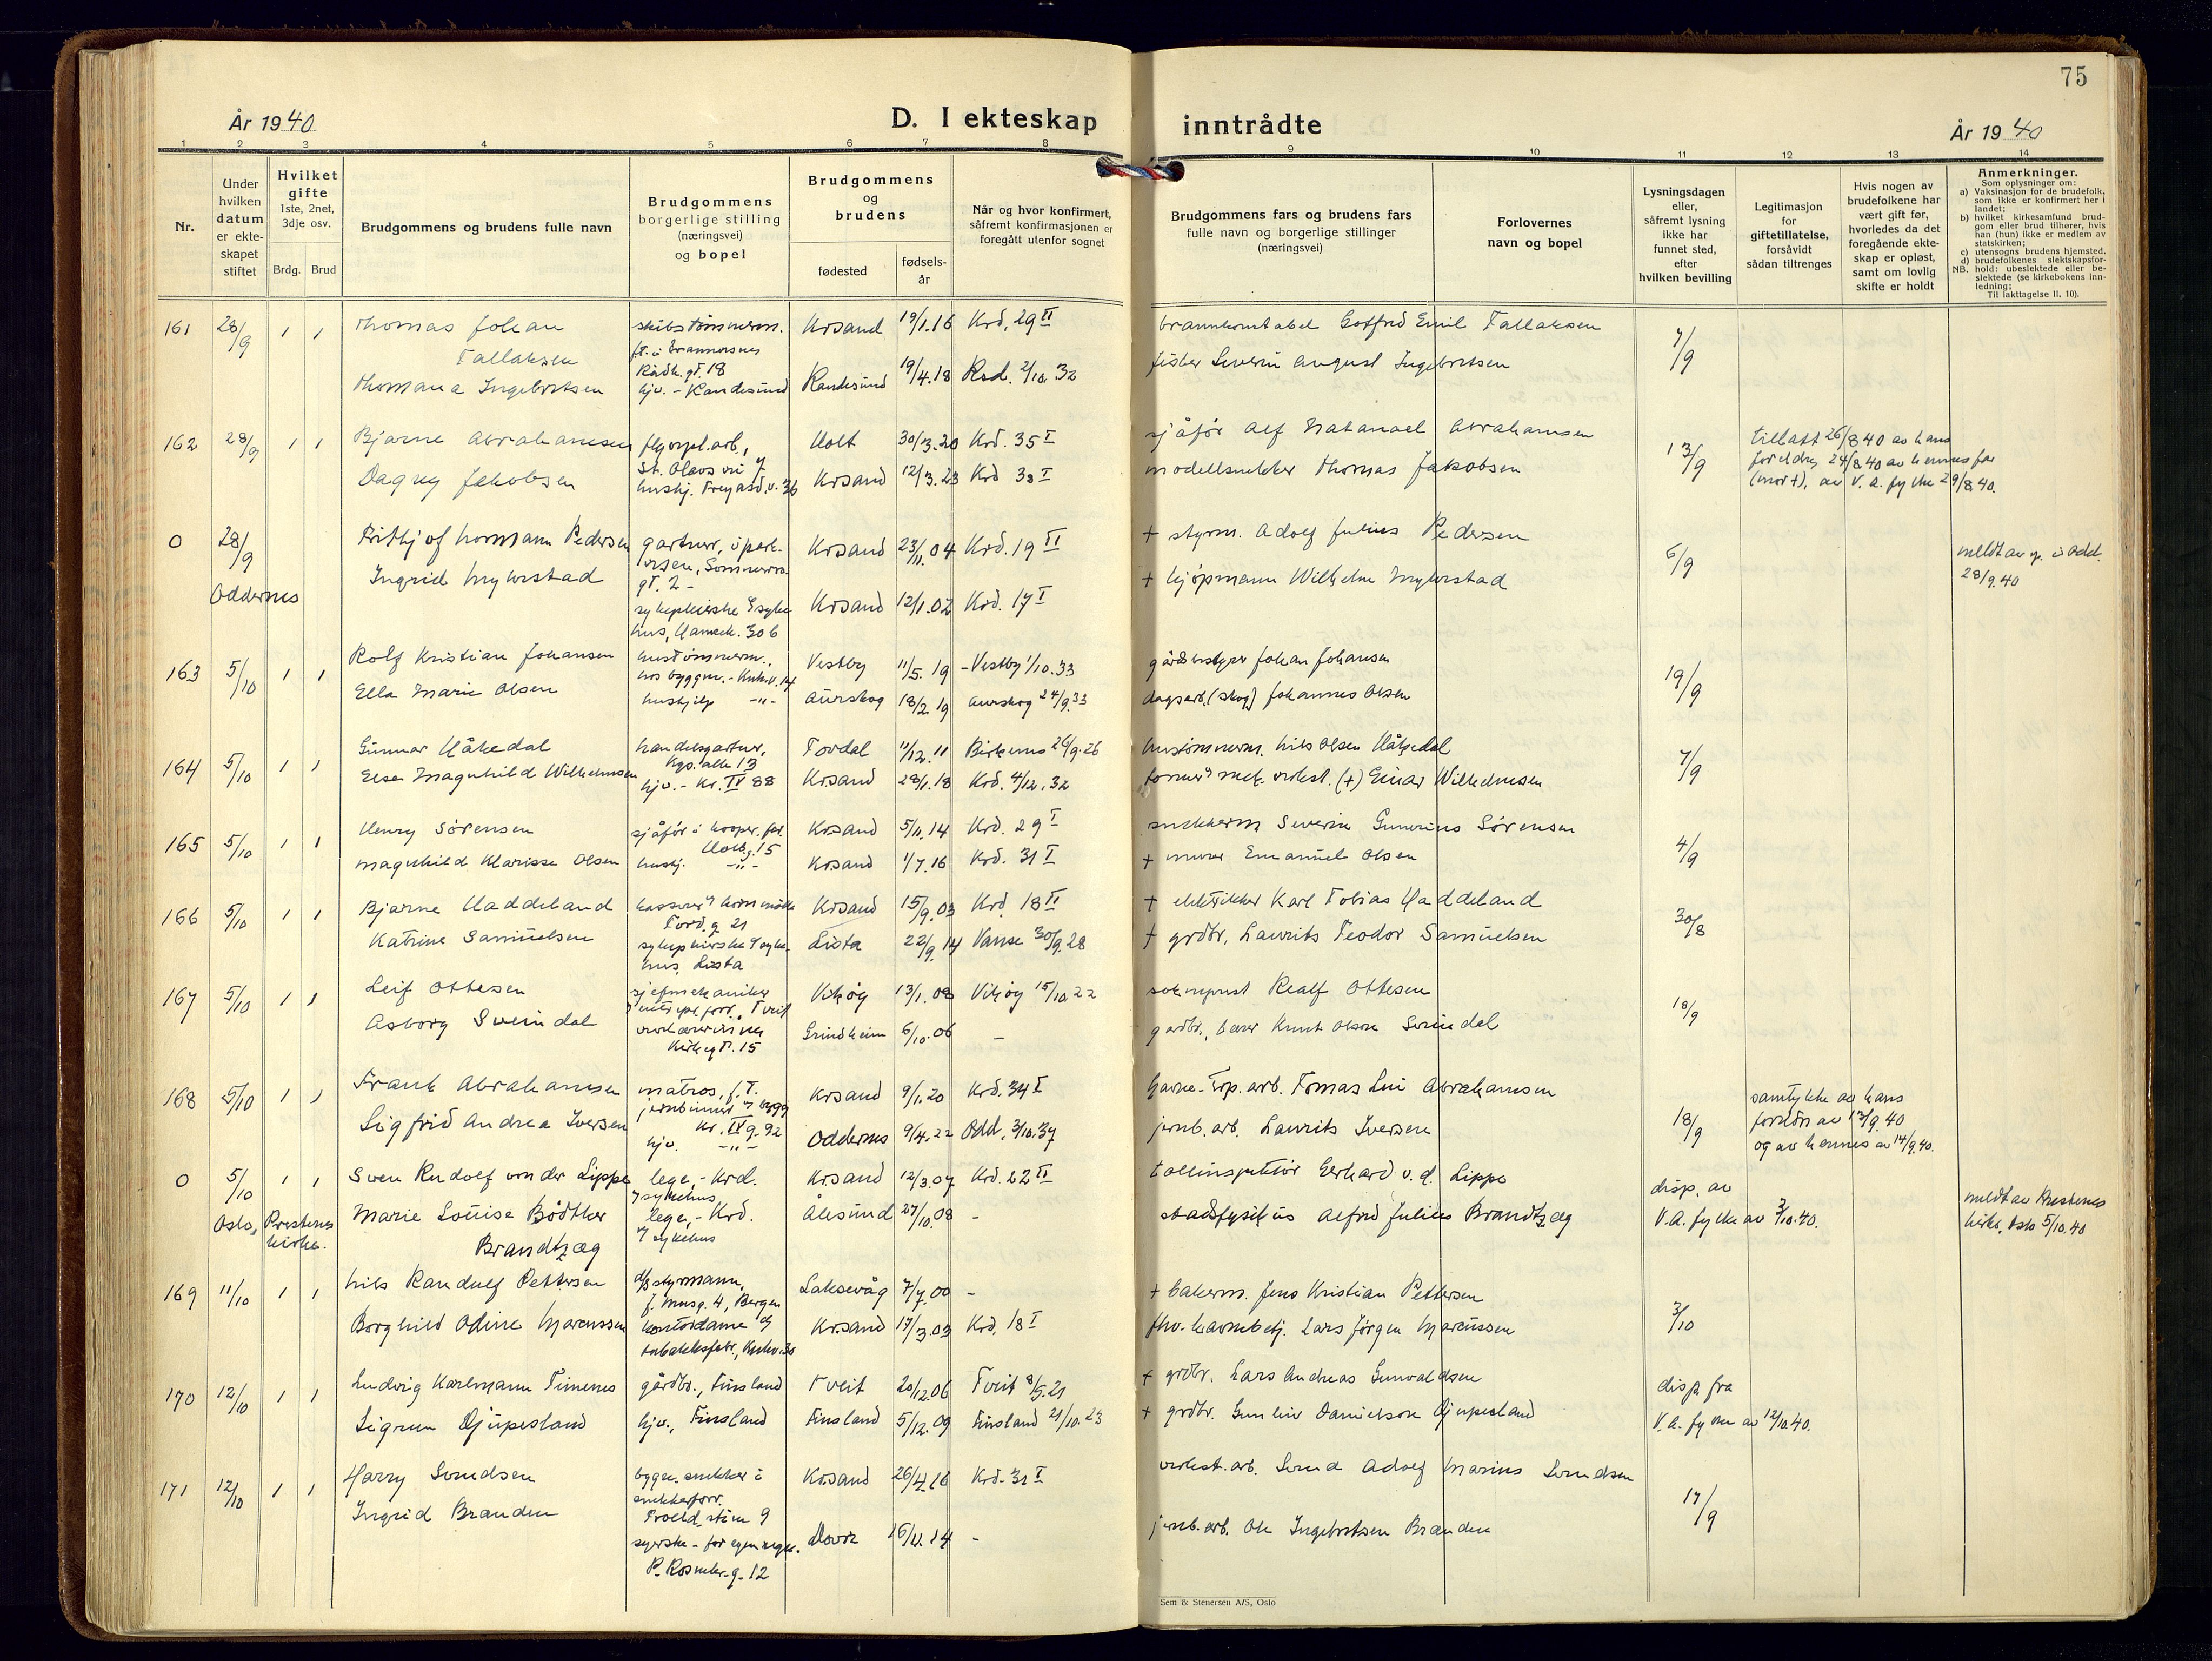 75
År 1940
D. I ekteskap inntrådte
År 1940
1 2 3 4 5 6 7 8 9 10 11 12 13 14
Nr.
Under hvilken datum er ekteskapet stiftet
Hvilket gifte
1ste, 2net, 3dje osv.
Brdg. Brud
Brudgommens og brudens fulle navn
Brudgommens borgerlige stilling (næringsvei) og bopel
Brudgommens og brudens
fødested
fødselsår
Når og hvor konfirmert, såfremt konfirmasjonen er foregått utenfor sognet
Brudgommens fars og brudens fars fulle navn og borgerlige stillinger (næringsvei)
Forlovernes navn og bopel
Lysningsdagen eller, såfremt lysning ikke har funnet sted, efter hvilken bevilling
Legitimasjon for giftetillatelse, forsåvidt sådan tiltrenges
Hvis nogen av brudefolkene har vært gift før, hvorledes da det foregående ekteskap er opløst, samt om lovlig skifte er holdt
Anmerkninger.
Som oplysninger om:
a) Vaksinasjon for de brudefolk, som ikke er konfirmert her i landet;
b) hvilket kirkesamfund brudgom eller brud tilhører, hvis han (hun) ikke er medlem av statskirken;
c) utensogns brudens hjemsted.
d) brudefolkenes slektskapsforhold: ubeslektede eller beslektede (se kirkebokens innledning;
NB.
Til iakttagelse II, 10).
161 28/9 1 1 Thomas Johan Tallaksen skibstømmerm. Krsand 19/1.16 Krd, 29 II brannkonstabel Gotfred Emil Tallaksen 7/9
Rådh.gt. 18
Thomana Ingebretsen hjv. - Randesund Randesund 19/4.18 Rsd. 2/10 32 fisker Severin August Ingebretsen
162 28/9 1 1 Bjarne Abrahamsen St. Olavs vei 7 Holt 30/3.20 Krd. 35 I sjåfør Alf Natanael Abrahamsen 13/9 tillatt 26/8 40 av hans foreldre, 24/8 40 av hennes far (mor +), av V. A. fylke 29/8 40.
Dagny Jakobsen Krsand 12/3.23 Krd 38 I modellsnekker Thomas Jakobsen
0 28/9 Oddernes Frithjof Normann Pedersen gartner, Krsand 23/11.04 Krd. 19 II + styrm. Adolf Julius Pedersen 6/9 28/9.40
Ingrid Myhrstad Krsand 12/1.02 Krd. 17 I + kjøpmann Wilhelm Myhrstad
163 5/10 1 1 Rolf Kristian Johansen hustømmerm. Vestby 11/5.19 - Vestby 1/10.33 gårdsbestyrer Johan Johansen 19/9
Ella Marie Olsen hushjelp -"- Aurskog 18/2.19 Aurskog 24/9.33 dagsarb. (skog) Johannes Olsen
164 5/10 1 1 Gunnar Håkedal handelsgartner, Kgs. alle 13 Tovdal 11/12.11 Birkenes 26/9.26 hustømmerm. Nils Olsen Håkedal 7/9
Else Magnhild Wilhelmsen hjv. - Kr. IV 88 Krsand 28/1.18 Krd. 4/12.32 (+) Einar Wilhelmsen
165 5/10 1 1 Henry Sørensen sjåfør i Krsand 5/11.14 Krd. 29 I snekkerm. Severin Gunerius Sørensen 4/9
Magnhild Klarisse Olsen hushj. -"- Krsand 1/7.16 Krd. 31 I + murer Emanuel Olsen
166 5/10 1 1 Bjarne Haddeland Tord.g. 21 Krsand 15/9.03 Krd. 18 II + elektriker Karl Tobias Haddeland 30/8
Katrine Samuelsen sykepleierske hus, Lista Lista 22/9.14 Vanse 30/9.28 + grdbr. Laurits Teodor Samuelsen
167 5/10 1 1 Leif Ottesen sjefmekaniker Vikøy 13/1.08 Vikøy 15/10.22 sokneprest Realf Ottesen 18/9
Asborg Sveindal Kirkegt. 15 Grindheim 6/10.06 - gardbr., lærer Knut Olson Sveindal
168 5/10 1 1 Frank Abrahamsen matros, f.t. Krsand 9/1.20 Krd. 34 I havne-tрp. arb. Tomas Lui Abrahamsen 18/9 samtykke av hans foreldre av 13/9.40 og av hennes av 14/9.40.
Sigfrid Andrea Iversen hjv. -"- Oddernes 9/4.22 Odd, 3/10.37 jernb.arb. Laurits Iversen
0 5/10 1 1 Sven Rudolf von der Lippe lege, - Krd. sykehus Krsand 12/3.07 Krd. 22 II tollinspektør Gerhard v. d. Lippe disp. av V.A. fylke av 3/10.40. meldt av Prestenes kirke, Oslo 5/10.40
Oslo, Prestenes kirke. Marie Louise Bødtker Brandtzæg lege, - Krd. sykehus Ålesund 27/10.08 - stadsfysikus Alfred Julius Brandtzæg
169 11/10 1 1 Nils Randulf Pettersen styrmann, Bergen Laksevåg 7/7.00 - + bakerm. Jens Kristian Pettersen 3/10
Borghild Odine Marcussen kontordame Krsand 17/3.03 Krd. 18 I fhv. havnebetj. Lars Jørgen Marcussen
170 12/10 1 1 Ludvig Karlmann Timenes gårdbr., Finsland Tveit 20/12.06 Tveit 8/5.21 + grdbr. Lars Andreas Gunvaldsen disp. fra V.A. fylke av 12/10.40.
Sigrun Djupesland hjv., Finsland Finsland 5/12.09 Finsland 21/10.23 + grdbr. Gunleiv Danielson Djupesland
171 12/10 1 1 Harry Svendsen bygn. snekker i snekkerforr. Krsand 26/4.16 Krd. 31 I verkst.arb. Svend Adolf Marius Svendsen 17/9
Ingrid Branden syerske - for egen regn. 12 Dovre 16/11.14 - jernb.arb. Ole Ingebretsen Branden
Sem & Stenersen A/S, Oslo